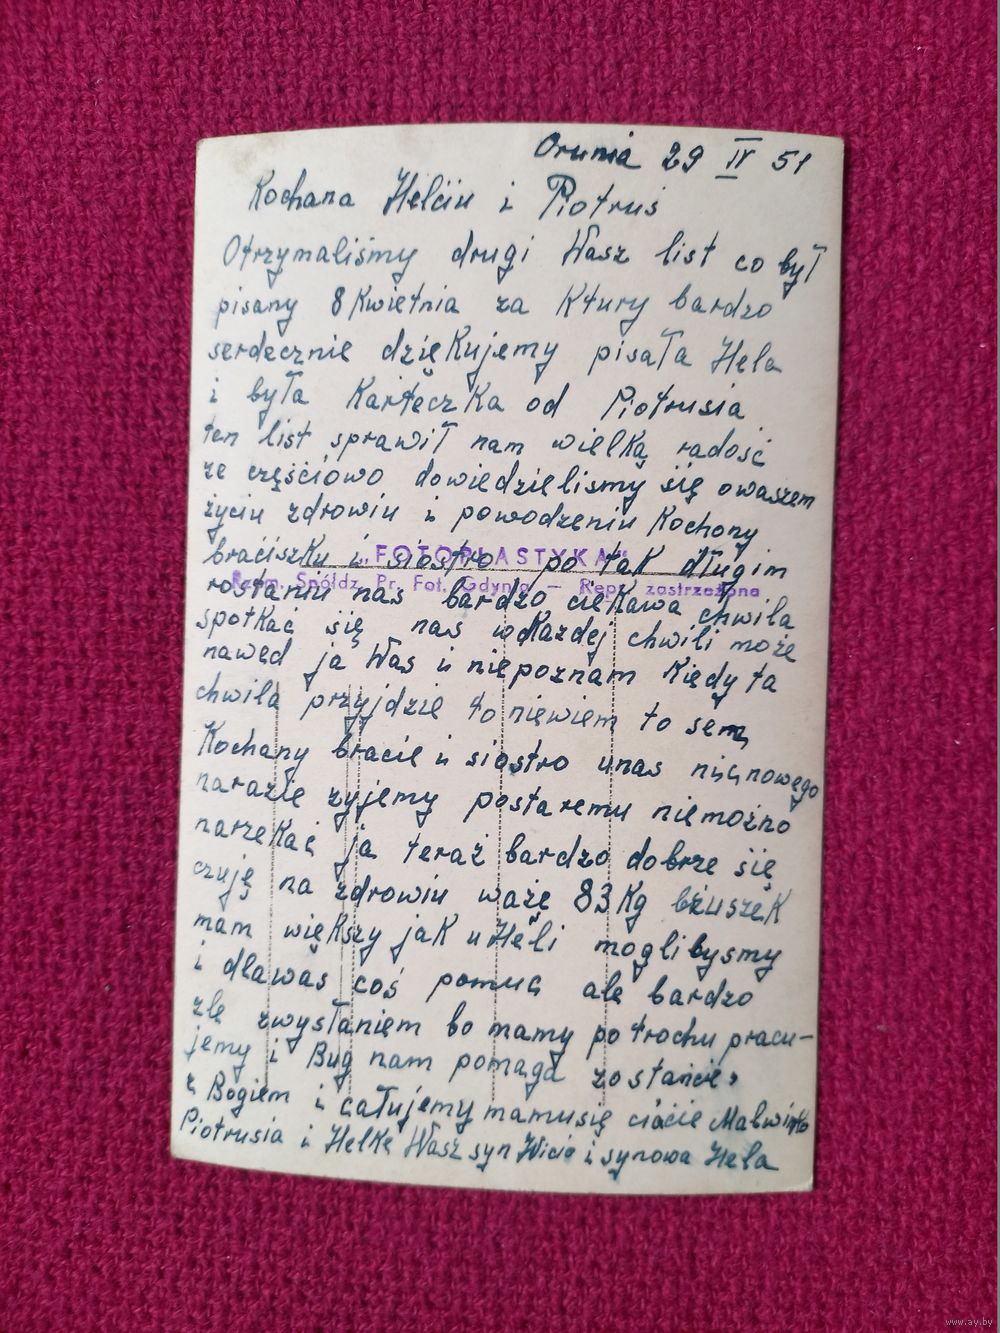 Orunia 29 IV 51
Kochana Helciu i Piotruś
Otrzymaliśmy drugi Wasz list co był
pisany 8 Kwietnia za Ktury bardzo
serdecznie dziękujemy pisała Hela
i była Karteczka od Piotrusia
ten list sprawił nam wielką radość
że częściowo dowiedzielismy się owaszem
życiu zdrowiu i powodzeniu Kochony
braciszku i siostro po tak długim
"FOTOPLASTYKA"
Rzem. Spółdz. Pr. Fot. Gdynia — Repr. zastrzeżona
rostaniu nas bardzo ciekawa chwila
spotkać się nas w Każdej chwili może
nawed ja Was i niepoznam Kiedy ta
chwila przyjdzie to niewiem to sem
Kochany bracie i siostro unas nic nowego
narazie żyjemy postaremu niemożno
narzekać ja teraz bardzo dobrze się
czuję na zdrowiu waże 83 Kg bżuszek
mam większy jak u Heli moglibysmy
i dlawas coś pomuc ale bardzo
zle zwysłaniem bo mamy potrochu pracu-
jemy i Bug nam pomaga zostańcie
z Bogiem i całujemy mamusię ciocie
Piotrusia i Helke Wasz syn i synowa Hela
www.ay.by